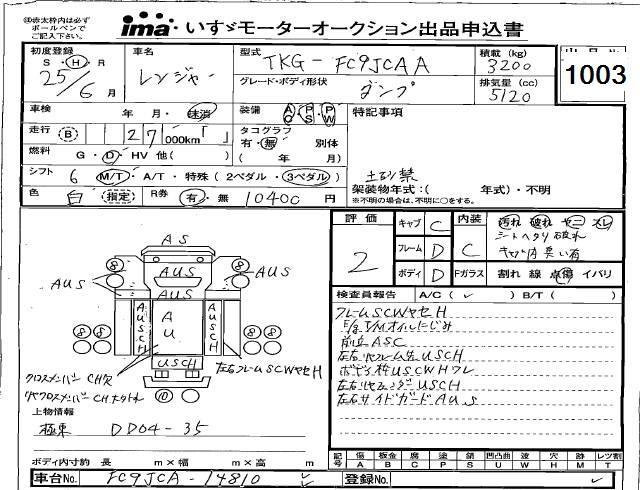 ㊟赤太枠内は必ず
ボールペンで
ご記入下さい。
ima いすゞモーターオークション出品申込書
初度登録 車名 型式 積載 (kg)
S・H・R レンジャー TKG-FC9JCAA 3200
25/6月 グレード・ボディ形状 ダンプ 排気量 (cc) 5120
1003
車検 年・月・抹消 装備 AC PS PW 特記事項
走行 B 27 000km「 」 タコグラフ 有・無 別体
燃料 G・D・HV 他( ) ( 年 月)
シフト 6 M/T・A/T・特殊(2ペダル・3ペダル) 土砂禁
架装物年式:( 年式)・不明
※不明の場合は、不明に○をする。
色 白 指定 R券 有・無 10400 円
評価 キャブ C 内装 汚れ 破れ ヤニ スレ
2 フレーム D C シートヘタリ
ボディ D Fガラス 割れ 線 点傷 イバリ
検査員報告 A/C( ✓ )B/T( )
フレームSCWヤセH
T/Mオイルにじみ
前立ASC
USCH
ボデー枠USCWHワレ
左右リヤフェンダーUSCH
左右サイドガードAUS
AS
8 AUS 8
AUS AUS AUS
AUSCH AU AUSCH
8 8 8 8
USCH 左右フレームSCWヤセH
クロスメンバーCH欠
リヤクロスメンバーCH
10
上物情報
極東 DD04-35
記号 傷A 板金B 腐C 塗P 錆S 凹凸曲U 波W 穴H 跡M レツ割T
ボディ内寸約 長 m×幅 m×高 m
車台No. FC9JCA-14810 ✓ 登録No. ✓